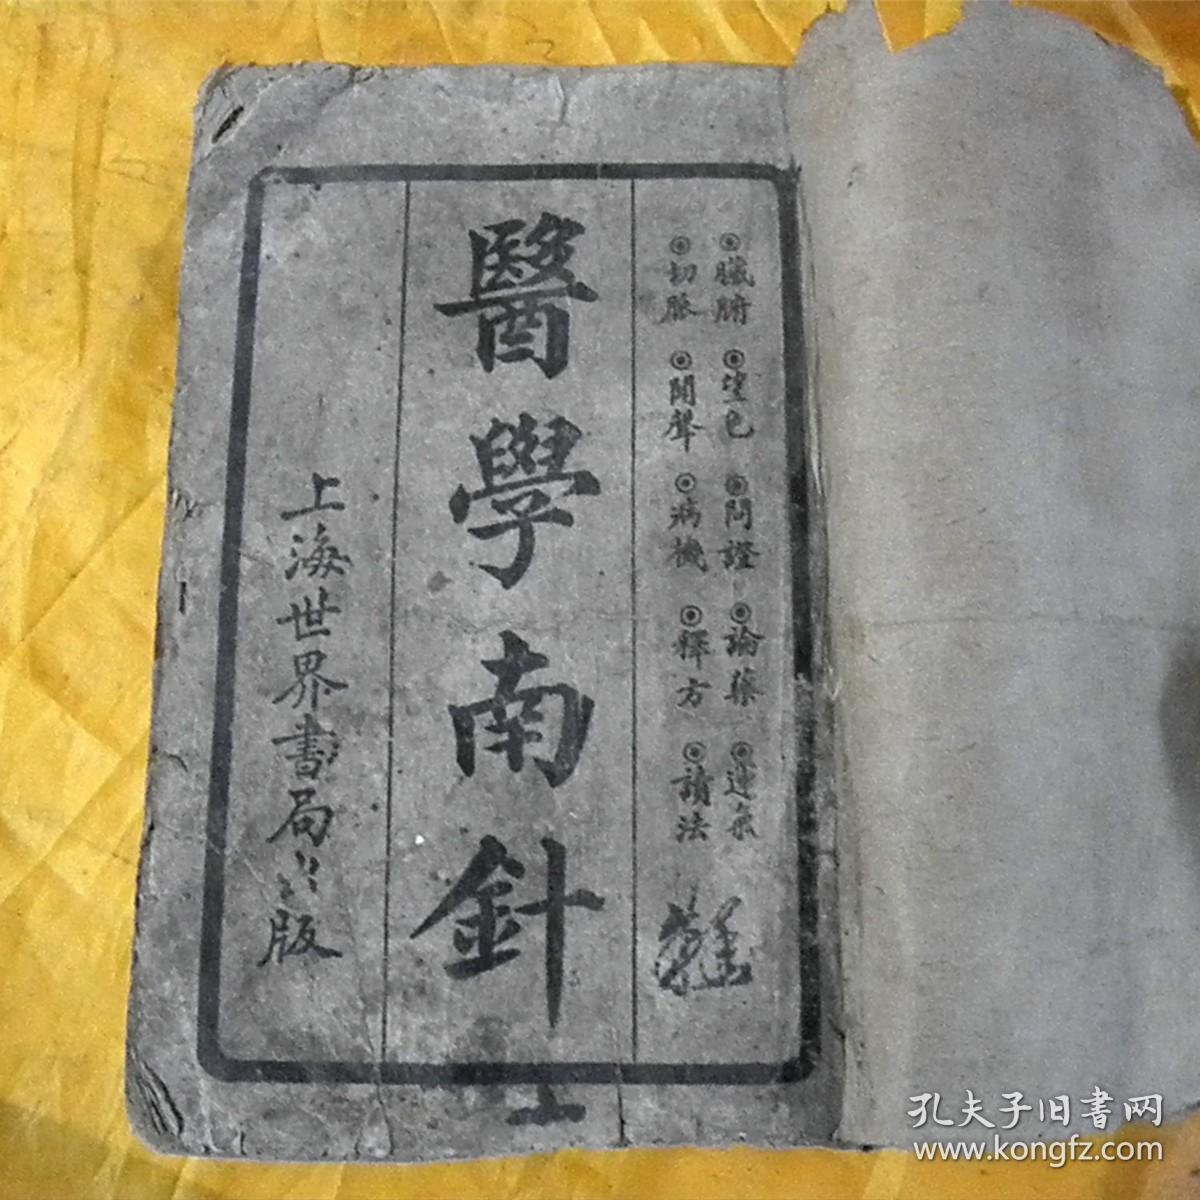 ◉臟腑 ◉望色 ◉問證 ◉論藥 ◉運氣
◉切脈 ◉聞聲 ◉病機 ◉釋方 ◉讀法
醫學南針
上海世界書局出版
上
孔夫子旧書网
www.kongfz.com